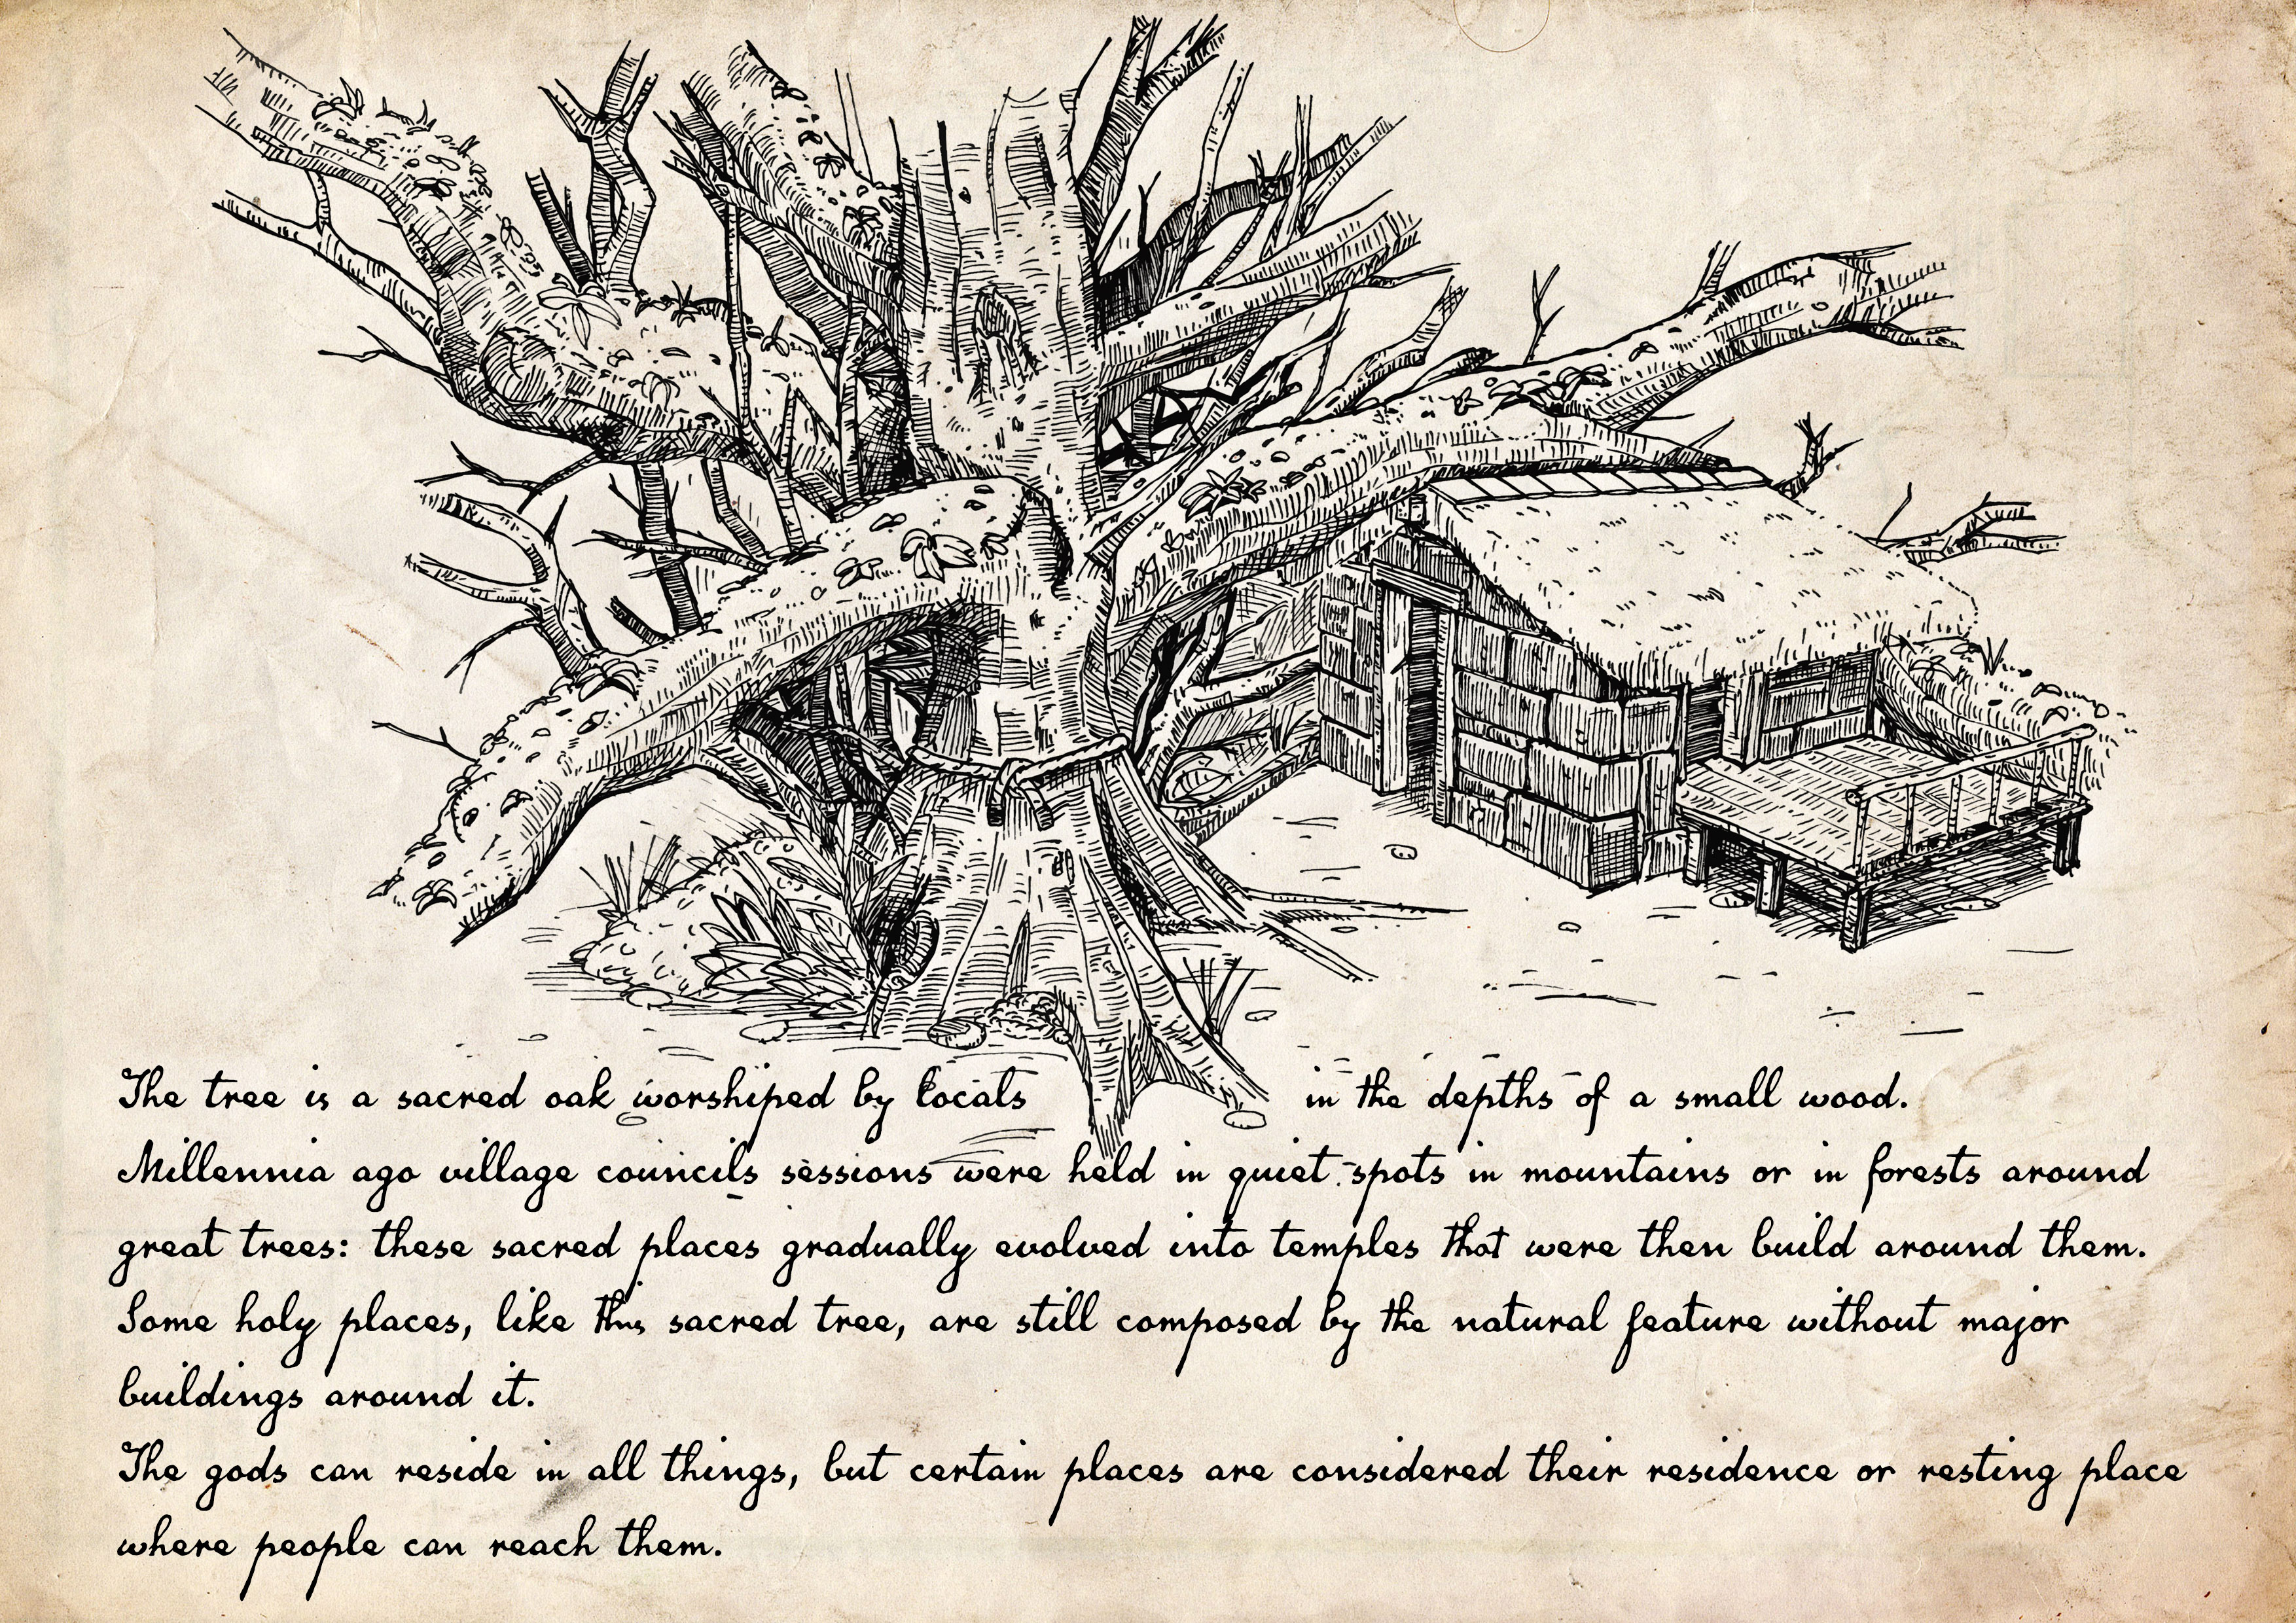 The tree is a sacred oak worshiped by locals in the depths of a small wood.
Millennia ago village councils sessions were held in quiet spots in mountains or in forests around
great trees: these sacred places gradually evolved into temples that were then build around them.
Some holy places, like this sacred tree, are still composed by the natural feature without major
buildings around it.
The gods can reside in all things, but certain places are considered their residence or resting place
where people can reach them.